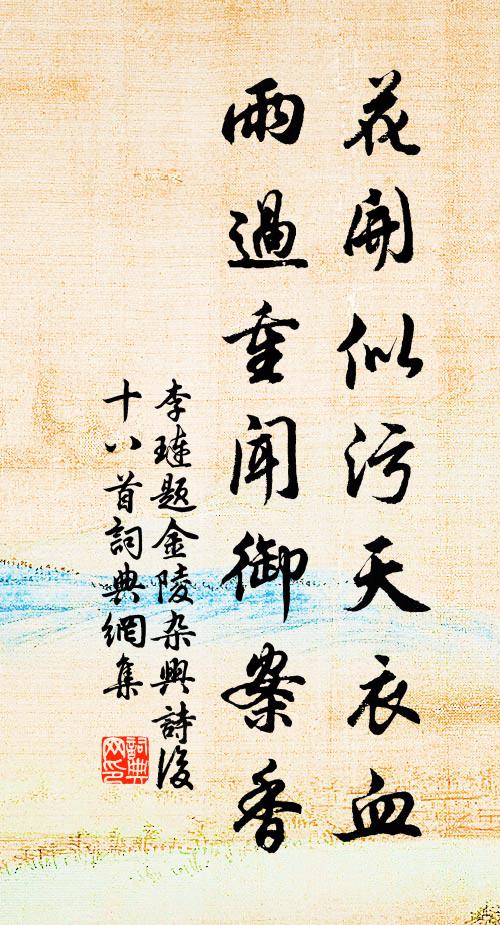 花開似污天衣血
雨過重聞御案香
李璉題金陵杂興詩後
十八首詞典網集
詞典
网印